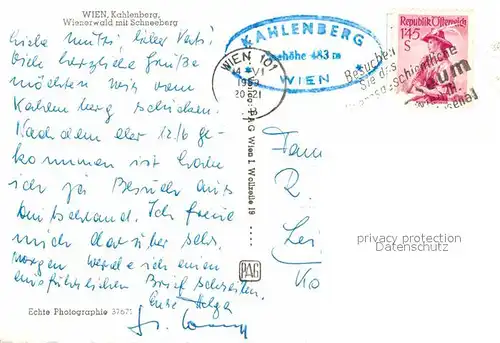 WIEN, Kahlenberg,
Wienerwald mit Schneeberg
Liebe Mutti, lieber Vati!
Viele herzliche Grüße
möchten wir vom
Kahlenberg schicken.
Nachdem der 12/6 ge-
kommen ist habe
ich ja Besuch aus
Deutschland. Ich freue
mich darüber sehr.
Morgen werde ich einen
ausführlichen Brief schreiben.
Eure Helga
Echte Photographie 37671
PAG Wien I, Wollzeile 19
PAG
WIEN 101
VI
20-21
KAHLENBERG
Seehöhe 483 m
WIEN
Besuchen
Sie das
Republik Österreich
1.45
S
Fam
R.
Lei
Ko
privacy protection
Datenschutz